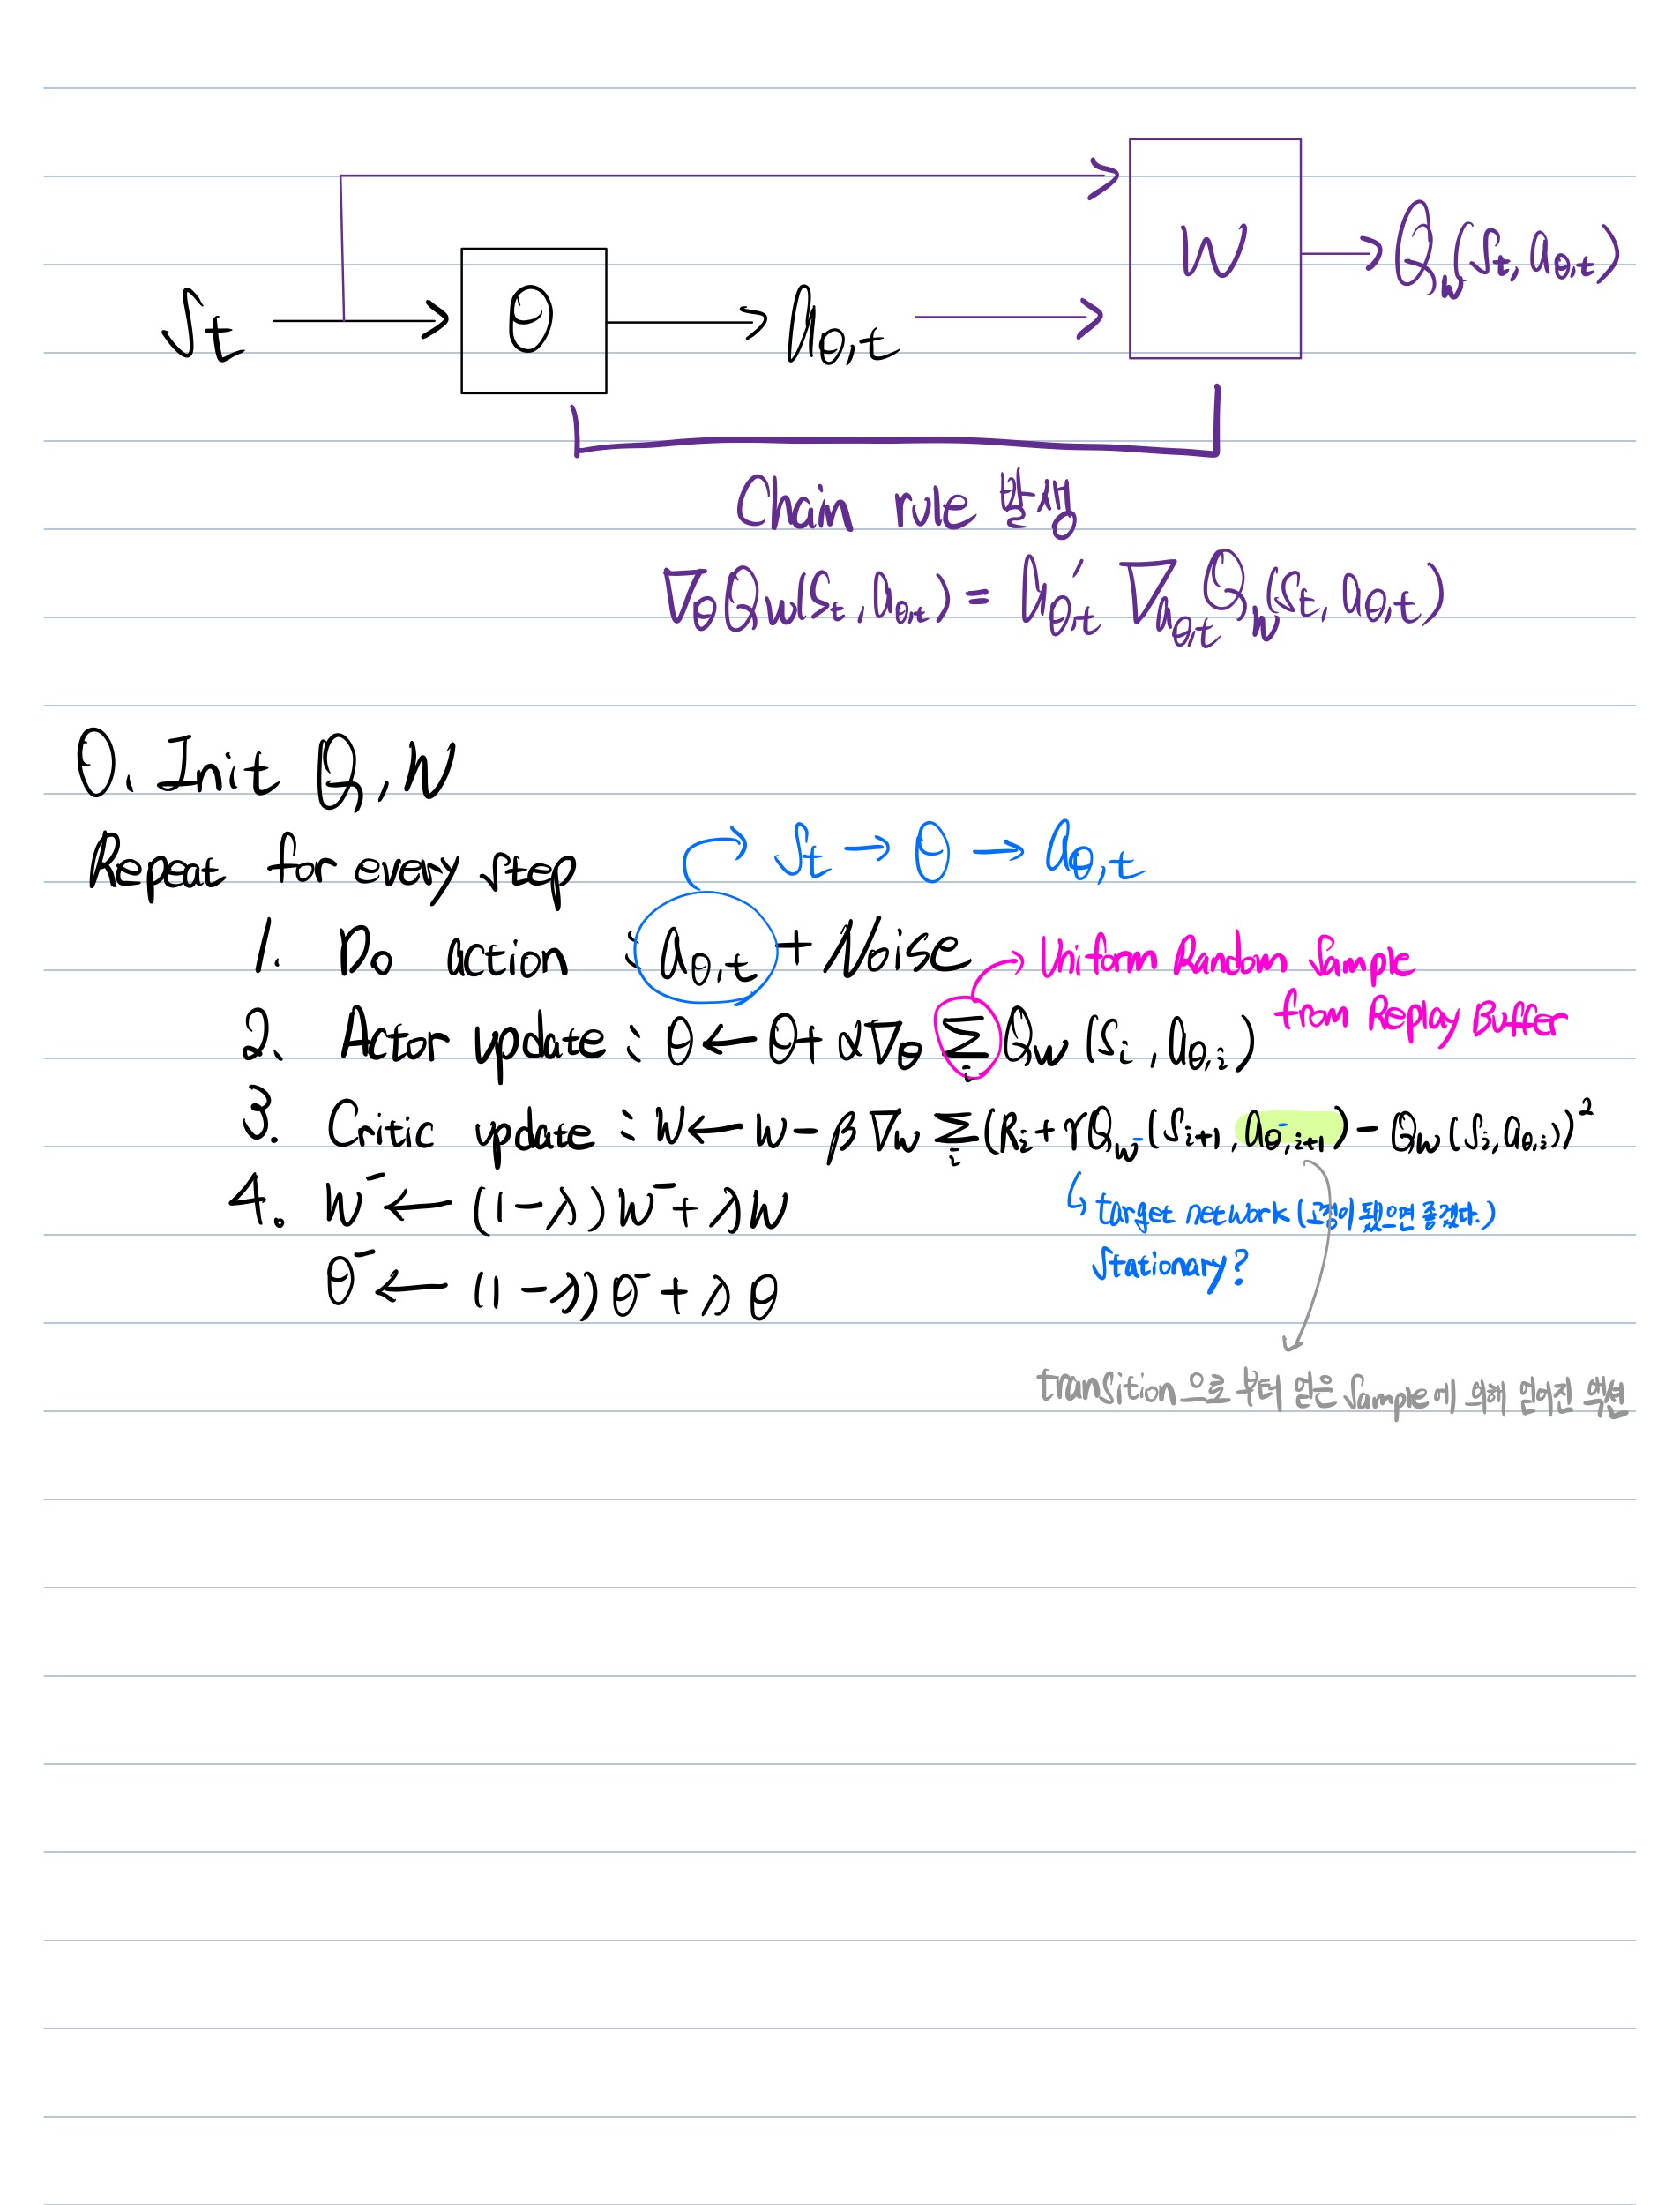 S_t → θ → a_{θ,t} → W → Q_w(S_t, a_{θ,t})
Chain rule 발생
∇_θ Q_w(S_t, a_{θ,t}) = a'_{θ,t} ∇_{a_{θ,t}} Q_w(S_t, a_{θ,t})
0. Init Q, W
Repeat for every step
S_t → θ → a_{θ,t}
1. Do action : a_{θ,t} + Noise
Uniform Random Sample
from Replay Buffer
2. Actor update : θ ← θ + α∇_θ Σ_i Q_w(S_i, a_{θ,i})
3. Critic update : W ← W - β ∇_w Σ_i (R_i + γQ_{w^-}(S_{i+1}, a_{θ^-,i+1}) - Q_w(S_i, a_{θ,i}))²
4. W^- ← (1-λ)W^- + λW
target network (고정이 됐으면 좋겠다.)
Stationary?
θ^- ← (1-λ)θ^- + λθ
transition으로 부터 얻은 Sample에 의해 얻어진 액션